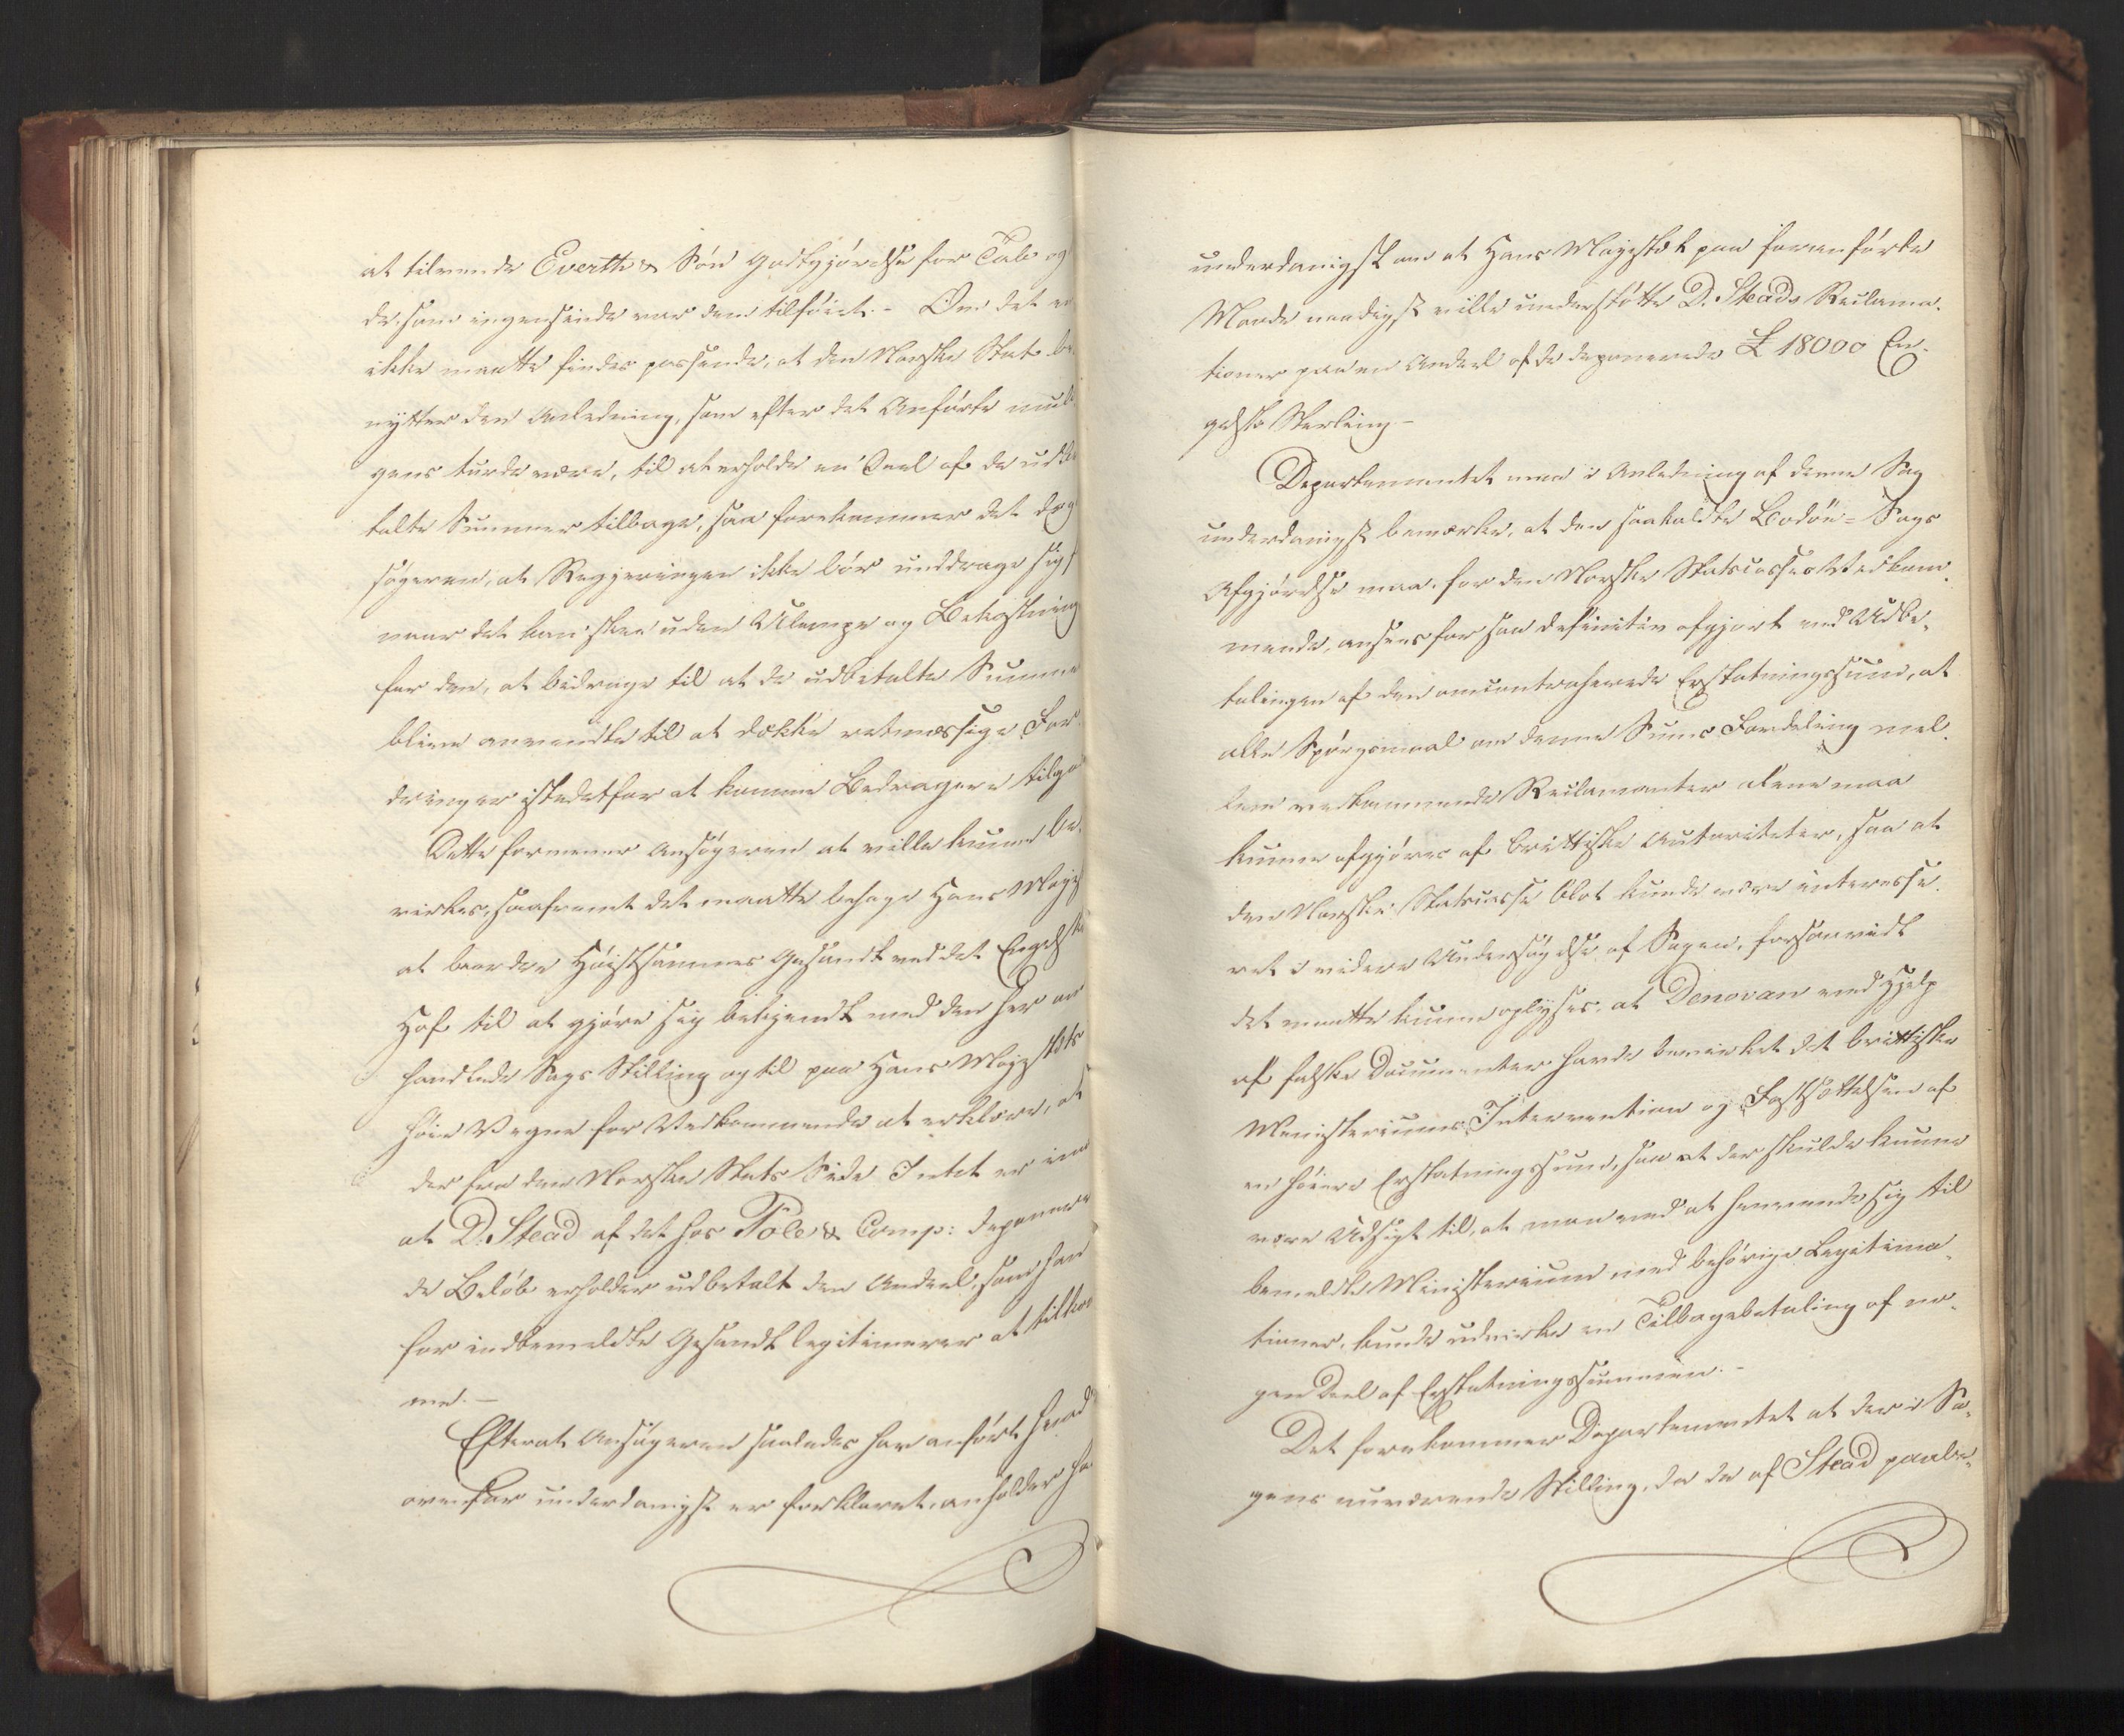 at tilvende Everth & Søn Godtgjørelse for Tab og
de, som ingensinde var dem tilføiet. - Om det en
ikke maatte findes passende, at den Norske Stat be-
nytter den Anledning, som efter det Anførte mule
gens turde være, til at erholde en Deel af de udbe
talte Summer tilbage, saa forekommer det dog
søgeren, at Regjeringen ikke bør unddrage sig,
naar det kan skee uden Ulempe og Bekostning
for den, at bidrage til at de udbetalte Summer
blive anvendte til at dække retmæssige For-
dringer istedetfor at komme Bedragere tilgo
Dette formener Ansøgeren at ville kunne be-
virkes, saafremt det maatte behage Hans Majes
at beordre Høistsammes Gesandt ved det Engelske
Hof til at gjøre sig bekjendt med den her om
handlede Sags Stilling og til paa Hans Majestæts
høie Vegne for Vedkommende at erklære, at
der fra den Norske Stats Side Intet er imod
at D. Stead af det hos Pole & Comp: deponere
de Beløb erholder udbetalt den Andeel, som han
for indbemeldte Gesandt legitimerer at tilkom
me. -
Efterat Ansøgeren saaledes har anført hvad
ovenfor underdanigst er forklaret, anholder han
underdanigst om at Hans Majestæt paa foranførte
Maade naadigst ville understøtte D. Steads Reclama-
tioner paa en Andeel af de deponerede £ 18000 En-
gelske Sterling -
Departementet maa i Anledning af denne Sag
underdanigst bemærke, at den saakaldte Bodøe-Sags
Afgjørelse maa, for den Norske Statscasses Vedkom-
mende, ansees for saa definitiv afgjort ved Udbe-
talingen af den omcontraherede Erstatningssum, at
alle Spørgsmaal om denne Sums Fordeling mel-
lem vedkommende Reclamanter alene maa
kunne afgjøres af brittiske Autoriteter, saa at
den Norske Statscasse blot kunde være interesse-
ret i videre Undersøgelse af Sagen, forsaavidt
det maatte kunne oplyses, at Denovan ved Hjelp
af falske Documenter havde bevirket det brittiske
Ministeriums Intervention og Fastsættelsen af
en høiere Erstatningssum, saa at der skulde kunne
være Udsigt til, at man ved at henvende sig til
bemeldte Ministerium med behørige Legitima-
tioner, kunde udvirke en Tilbagebetaling af no-
gen Deel af Erstatningssummen. -
Det forekommer Departementet at der i Sa-
gens nuværende Stilling, da de af Stead paabe-